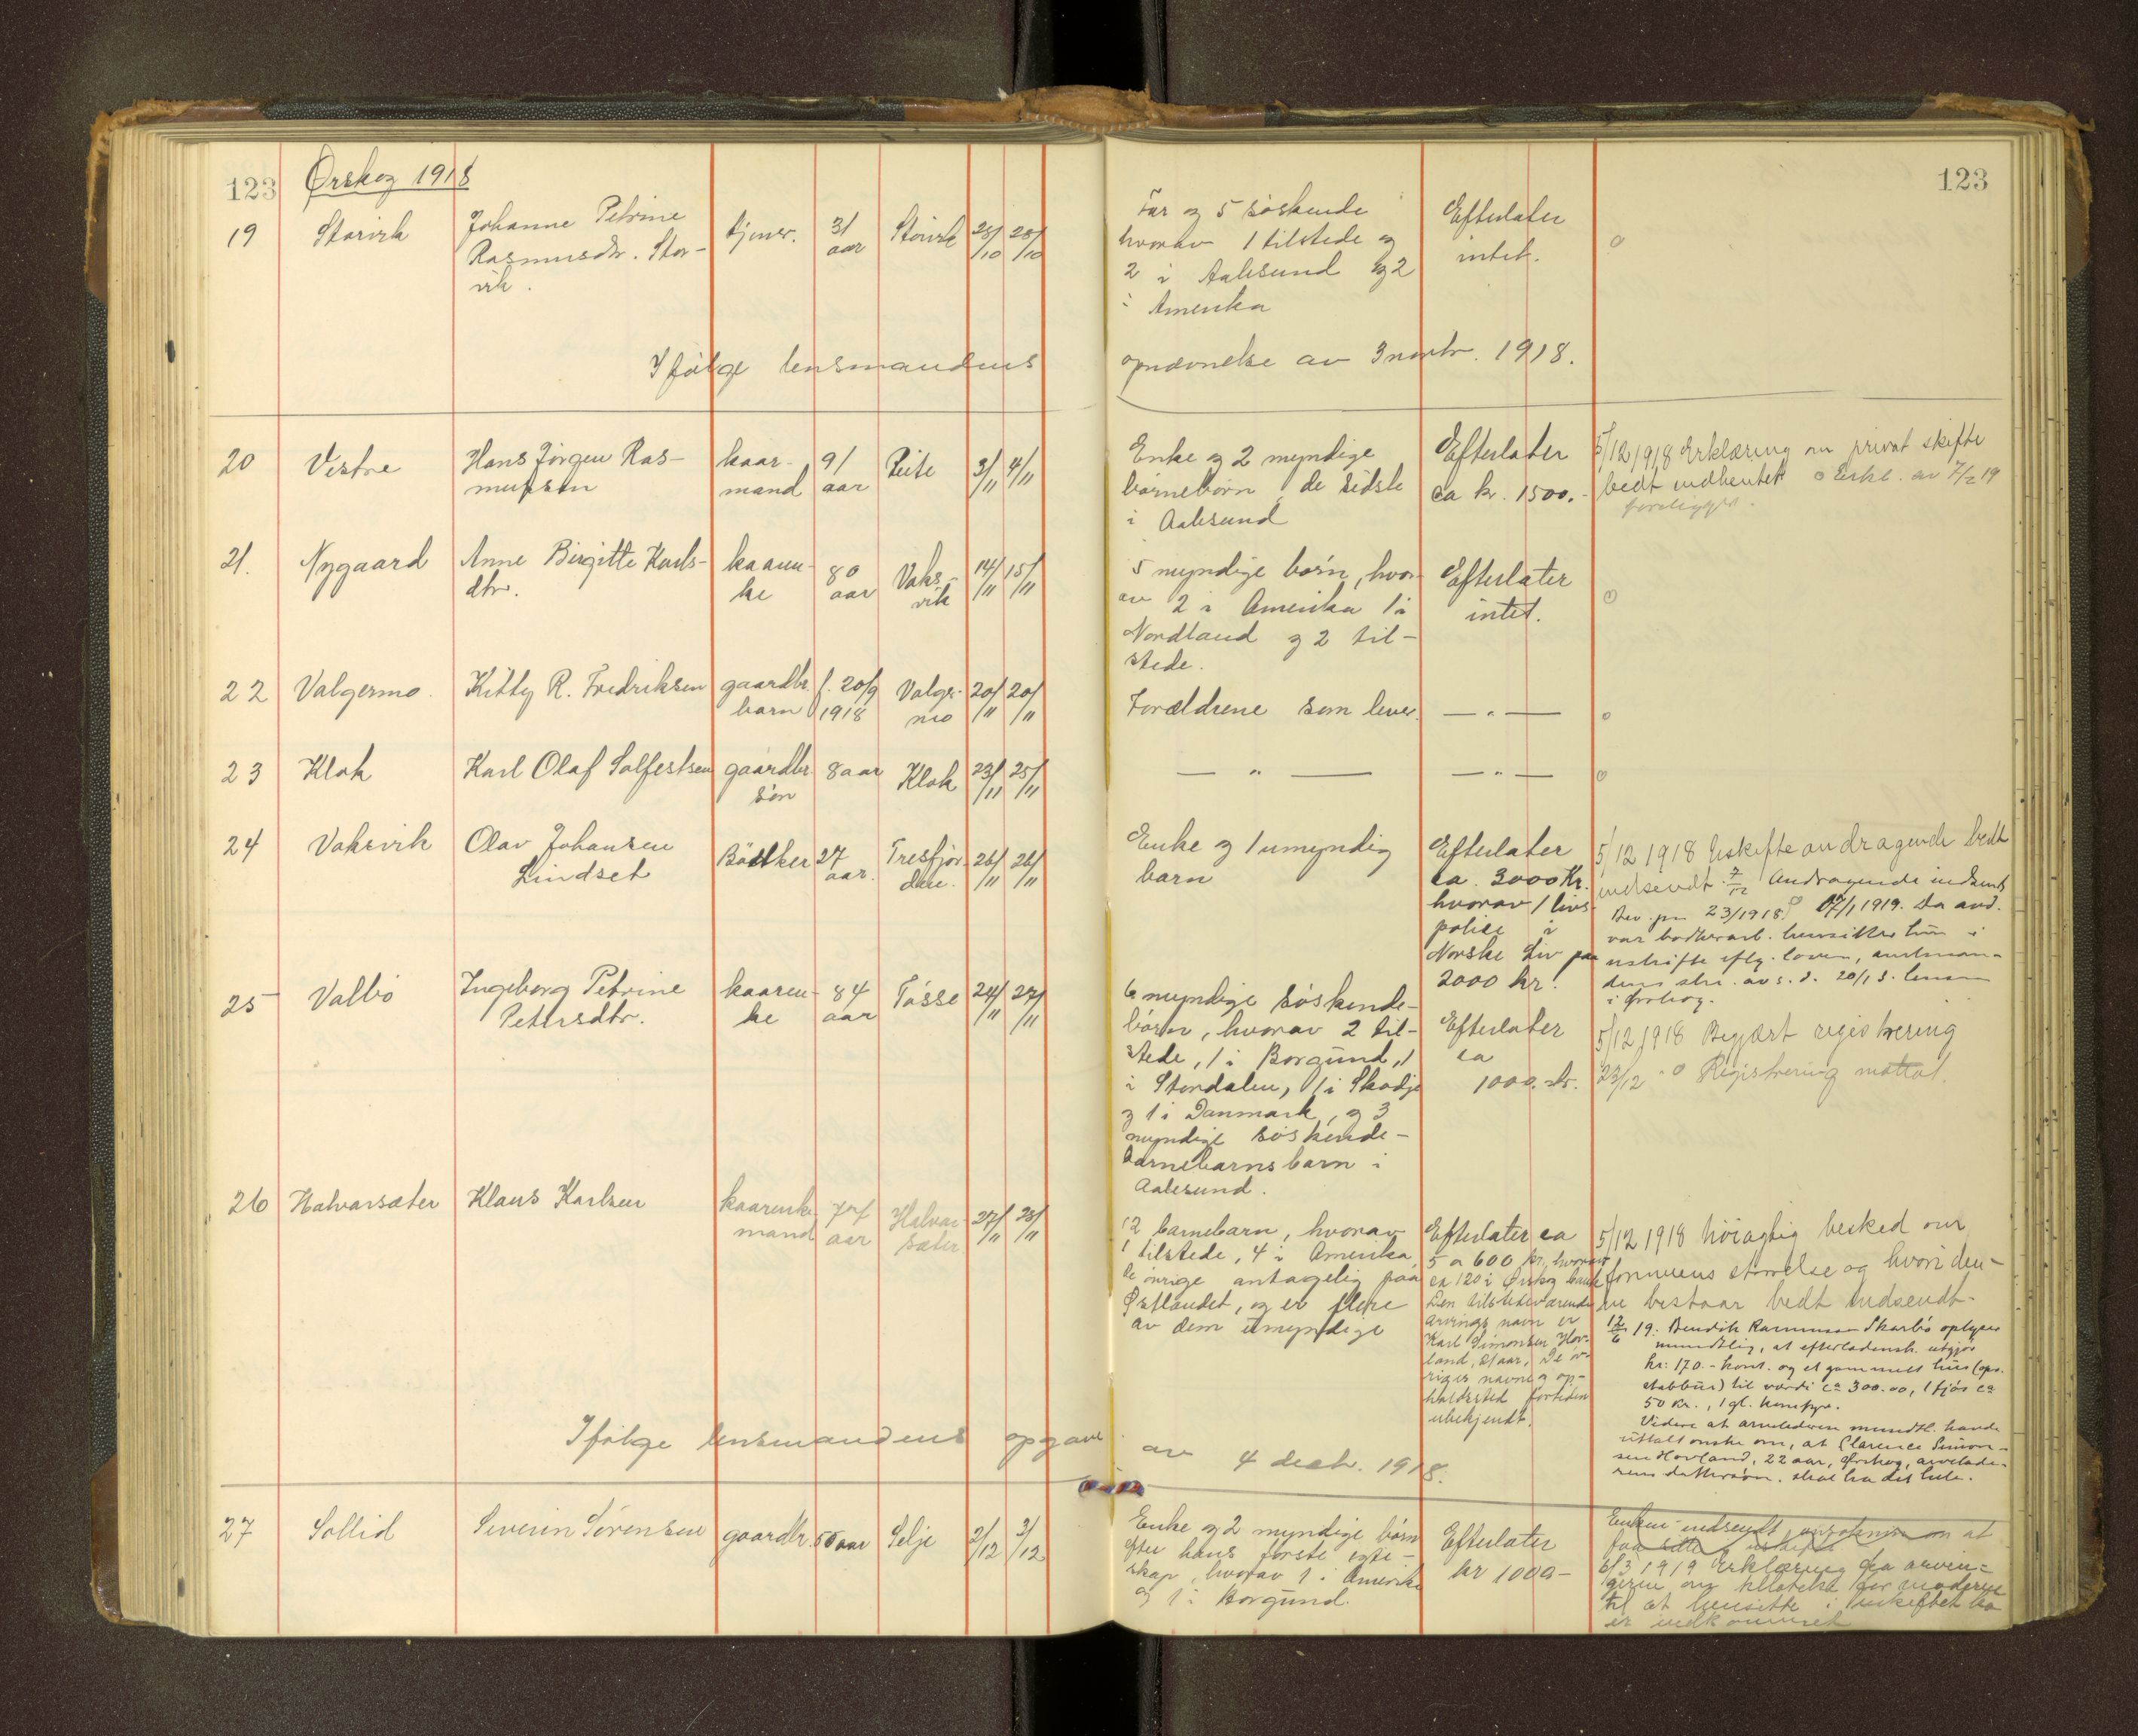 123
Ørskog 1918
123
19 Storvik Johanne Petrine Rasmusdtr. Storvik. tjener. 31 aar Storvik 25/10 28/10
Far og 5 søskende
hvorav 1 tilstede og
2 i Aalesund og 2
i Amerika
Efterlater
intet.
o
Ifølge lensmandens
opnævnelse av 3 novbr. 1918.
20 Vestre Hans Jørgen Rasmussen kaarmand 91 aar 3/11 4/11
Enke og 2 myndige
børnebørn, de sidste
i Aalesund
Efterlater
ca kr. 1500.-
5/12 1918 Erklæring om privat skifte
bedt indhentet o Erkl. av 7/2 19
foreligger.
21. Nygaard Anne Birgitte Karlsdtr. kaarenke 80 aar Vaksvik 14/11 15/11
5 myndige børn, hvorav
2 i Amerika 1 i
Nordland og 2 tilstede.
Efterlater
intet.
o
22 Valgermo. Kitty R. Fredriksen gaardbr. barn f. 20/9 1918 Valgermo 20/11 20/11
Forældrene som lever.
— " —
o
23 Klok Karl Olaf Solfestsen gaardbr. søn 8 aar Klok 23/11 25/11
— " —
— " —
o
24 Vaksvik Olav Johansen Lindset Bødker 27 aar. Tresfjorden. 26/11 26/11
Enke og 1 umyndig
barn
Efterlater
ca. 3000 Kr.
hvorav 1 livspolice
i
Norske Liv paa
2000 kr.
5/12 1918 Uskifteandragende bedt
indsendt. 7/12 Andragende indsendt
17/1 1919. Da avd.
i Ørskog.
25 Valbø Ingeborg Petrine Petersdtr. kaarenke 84 aar Tøsse 24/11 27/11
6 myndige søskendebørn,
hvorav 2 tilstede,
1 i Borgund, 1
i Stordalen, 1 i Skodje
og 1 i Danmark, og 3
myndige søskendebarnebarnsbarn i
Aalesund.
Efterlater
ca
1000 kr.
5/12 1918 Begjært registrering
23/12 o Registrering mottat.
26 Halvarsæter Klaus Karlsen kaarenkemand 77 aar Halvarsæter 27/11 28/11
12 barnebarn, hvorav
1 tilstede, 4 i Amerika,
de øvrige antagelig paa
Østlandet, og er flere
av dem umyndige
Efterlater ca
5 a 600 kr, hvorav
ca 120 i Ørskog bank
Den tilstedeværende
arvings navn er
Karl Simonsen Hovland,
21 aar, De øvriges
navne og opholdssted
fortiden
ubekjendt.
5/12 1918 Nøiagtig besked om
formuens størrelse og hvori denne
bestaar bedt indsendt.
12/6 19. Bendik Rasmussen Skarbø oplyser
mundtlig, at efterladensk. utgjør
kr: 170.- kont. og et gammelt hus (ops.
stabbur) til værdi ca 300.00, 1 fjøs ca
50 kr., 1 gl.
Videre at arveladeren mundtl. havde
uttalt ønske om, at Clarence Simonsen
Hovland, 22 aar, Ørskog, arveladerens
dattersøn. skal ha det hele.
Ifølge lensmandens opgave
av 4 decbr. 1918.
27 Sollid Severin Sørensen gaardbr. 50 aar Selje 2/12 3/12
Enke og 2 myndige børn
efter hans første egteskap,
hvorav 1 i Amerika
og 1 i Borgund.
Efterlater
kr 1000-
Enken indsendt ansøkning om at
faa sitte i uskifte
6/3 1919 Erklæring fra arvingerne
om tillatelse for moderen
til at hensitte i uskiftet bo
er indkommet